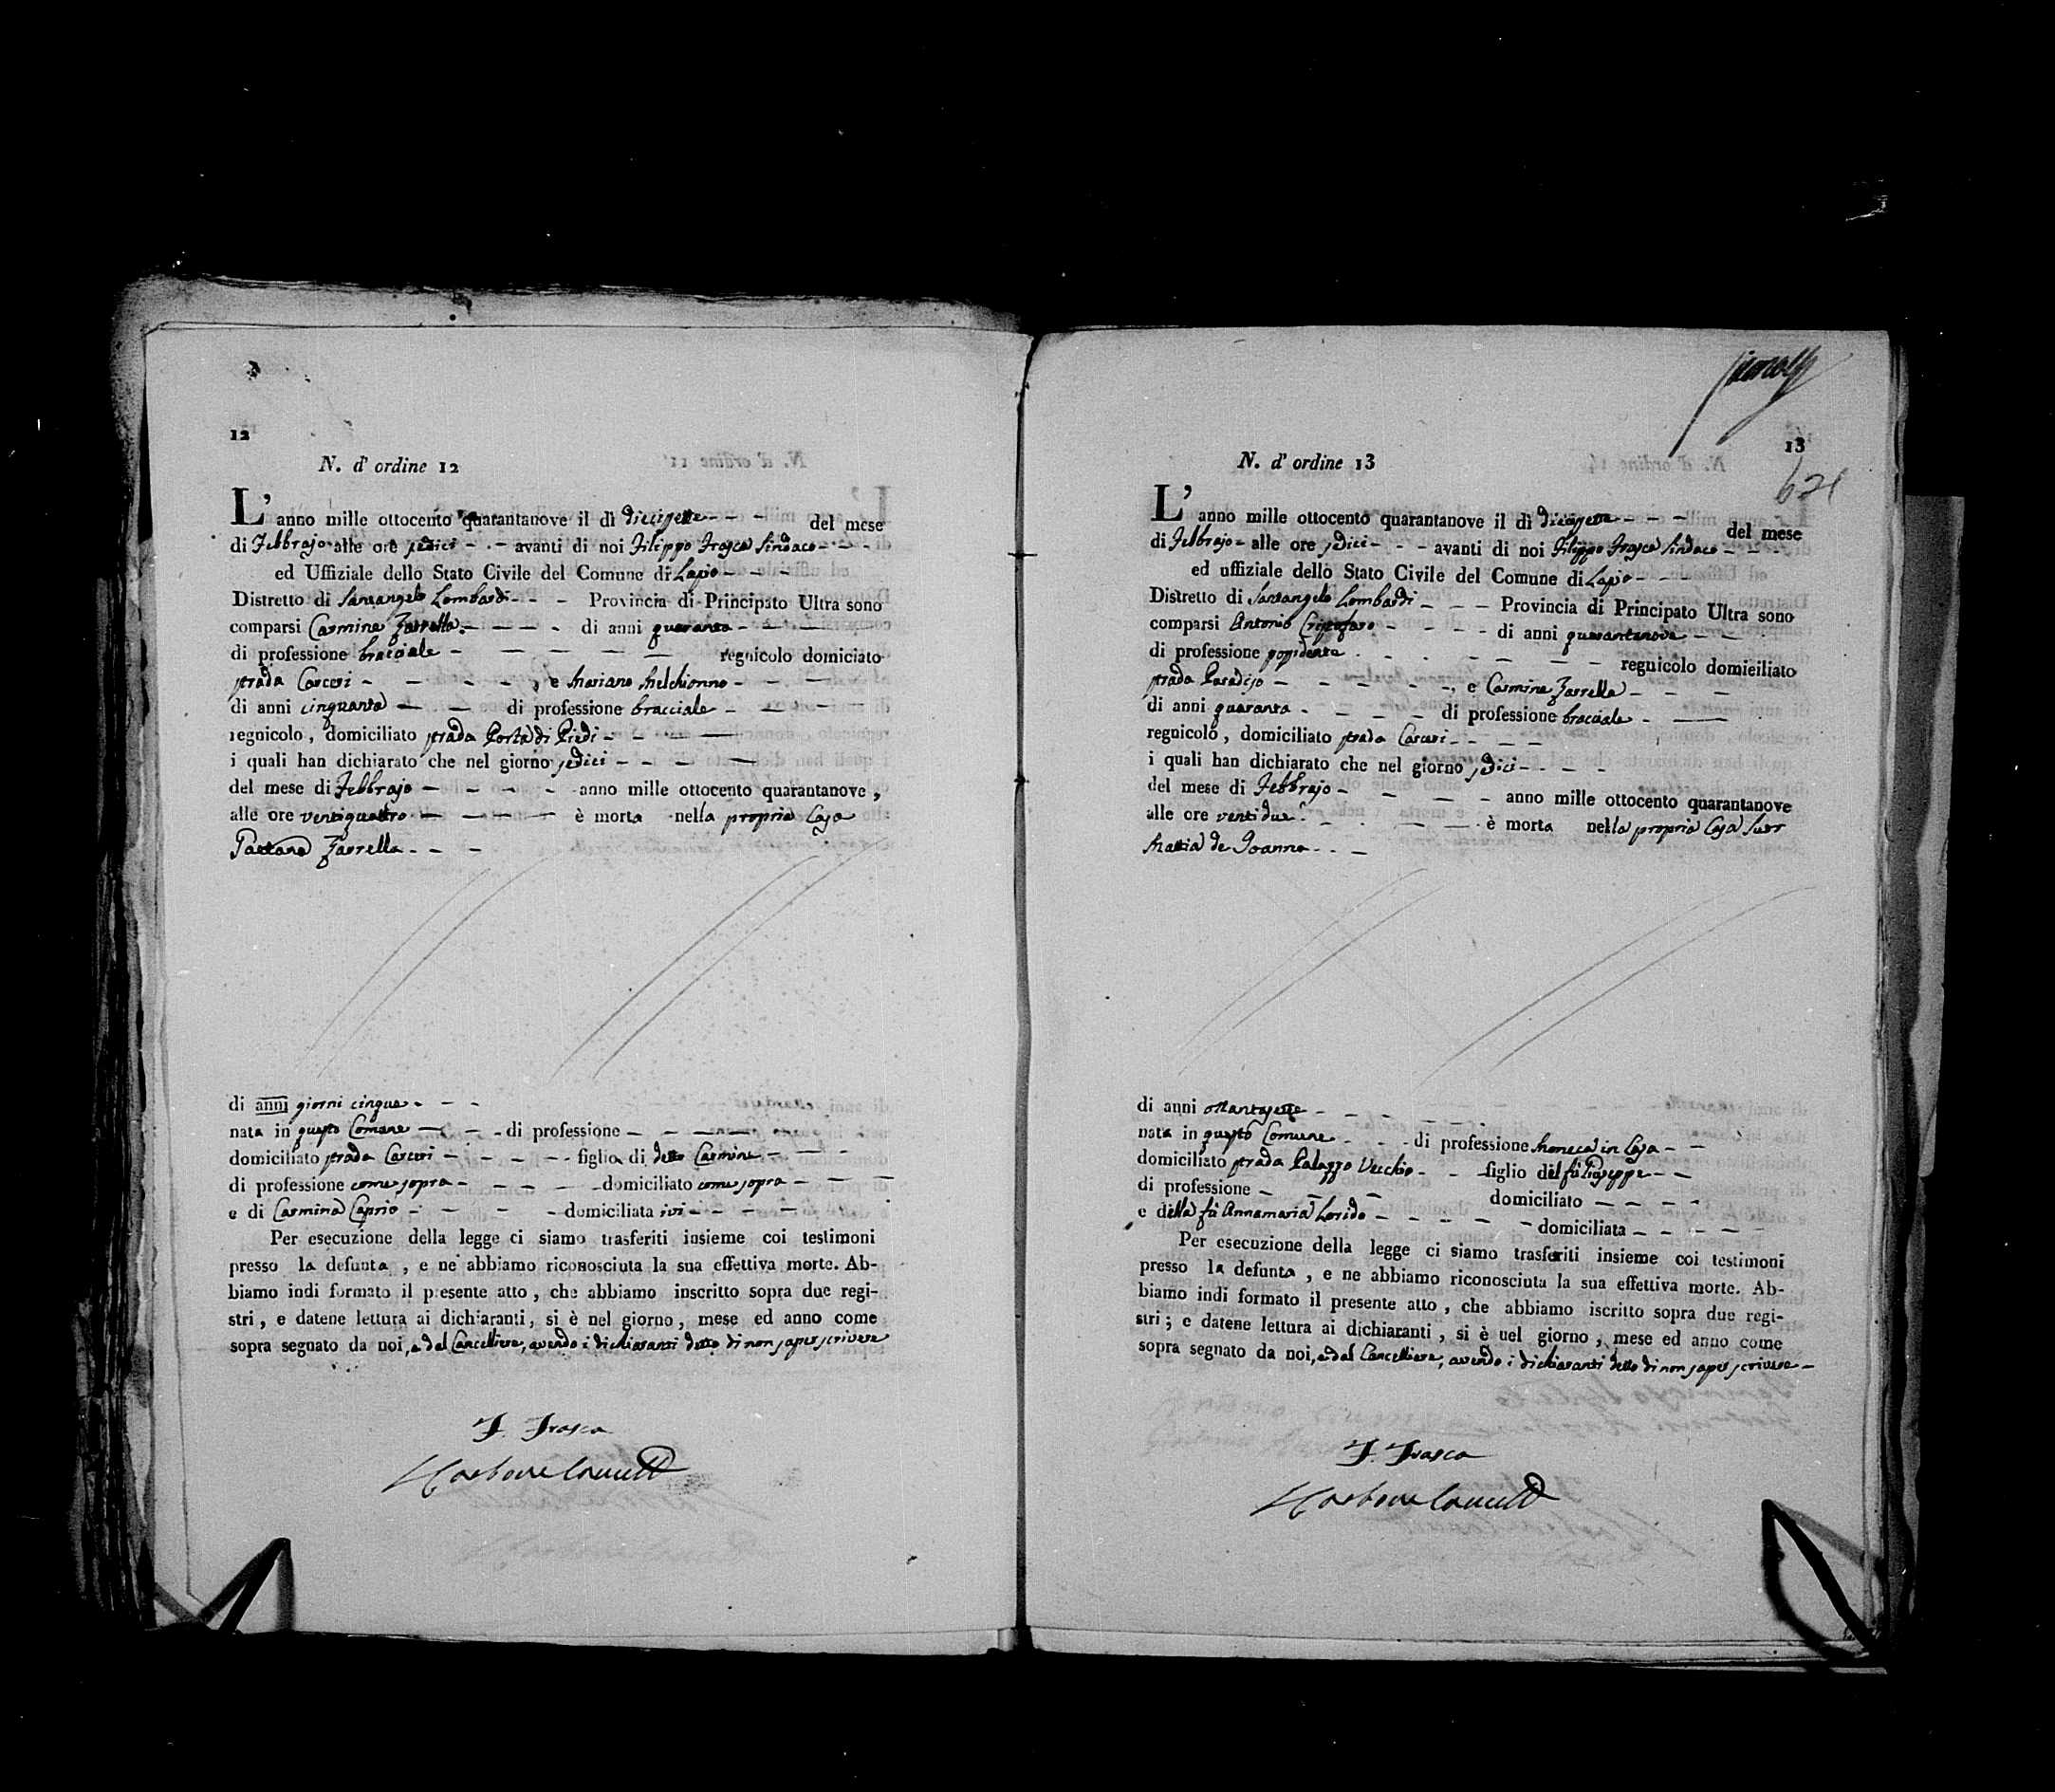 12
N. d' ordine 12
L' anno mille ottocento quarantanove il dì diecisette - - - del mese
di Febbrajo alle ore sedici - - - avanti di noi Filippo Frasca Sindaco - - -
ed Uffiziale dello Stato Civile del Comune di Lapio - - -
Distretto di Santangelo Lombardi - - - Provincia di Principato Ultra sono
comparsi Carmine Zarrella - - - - di anni quaranta - - -
di professione bracciale - - - - - - regnicolo domiciato
strada Carceri - - - - - , e Mariano Melchionno - - -
di anni cinquanta - - di professione bracciale - - - -
regnicolo , domiciliato strada Porta di Piedi - - - -
i quali han dichiarato che nel giorno sedici - - - -
del mese di Febbrajo - - - - - anno mille ottocento quarantanove ,
alle ore ventiquattro - - - - è morta nella propria Casa
Gaetana Zarrella - - -
di anni giorni cinque - - -
nata in questo Comune - - - di professione - - - -
domiciliato strada Carceri - - - - - figlia di detto Carmine - - -
di professione come sopra - - - - - domiciliato come sopra - - -
e di Carmina Caprio - - - - domiciliata ivi - - - -
Per esecuzione della legge ci siamo trasferiti insieme coi testimoni
presso la defunta , e ne abbiamo riconosciuta la sua effettiva morte. Ab-
biamo indi formato il presente atto , che abbiamo inscritto sopra due regi-
stri , e datene lettura ai dichiaranti , si è nel giorno , mese ed anno come
sopra segnato da noi, e dal Cancelliere, avendo i dichiaranti detto di non saper scrivere
F. Frasca
13
N. d' ordine 13
621
L' anno mille ottocento quarantanove il dì diecisette - - - del mese
di Febbrajo - alle ore sedici - - - avanti di noi Filippo Frasca Sindaco - - -
ed uffiziale dello Stato Civile del Comune di Lapio - - -
Distretto di Santangelo Lombardi - - - Provincia di Principato Ultra sono
comparsi Antonio Cristofaro - - - - di anni quarantanove - -
di professione possidente - - - - - - regnicolo domieiliato
strada Paradiso - - - - - , e Carmine Zarrella - - -
di anni quaranta - - - - di professione bracciale - -
regnicolo , domiciliato strada Carceri - - - -
i quali han dichiarato che nel giorno sedici - - - -
del mese di Febbrajo - - - - anno mille ottocento quarantanove
alle ore ventidue - - - - è morta nella propria Casa Suor
Mattia de Joanna - - -
di anni ottantasette - - - - - -
nata in questo Comune - - - di professione Moneca in Casa - -
domiciliato strada Palazzo Vecchio - - figlio del fù Giuseppe - -
di professione - - - domiciliato - - - -
e della fù Annamaria Lorido - - - - - domiciliata - - - -
Per esecuzione della legge ci siamo trasferiti insieme coi testimoni
presso la defunta , e ne abbiamo riconosciuta la sua effettiva morte. Ab-
biamo indi formato il presente atto , che abbiamo iscritto sopra due regi-
stri ; e datene lettura ai dichiaranti , si è uel giorno , mese ed anno come
sopra segnato da noi, e dal Cancelliere, avendo i dichiaranti detto di non saper scrivere -
F. Frasca